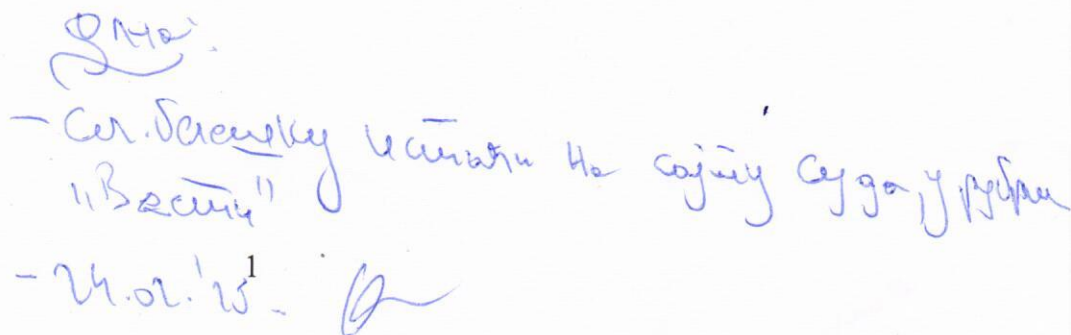 - Сл. белешку истаћи на сајту суда, у рубрици
"Вести"
- 24.02.'25.
1